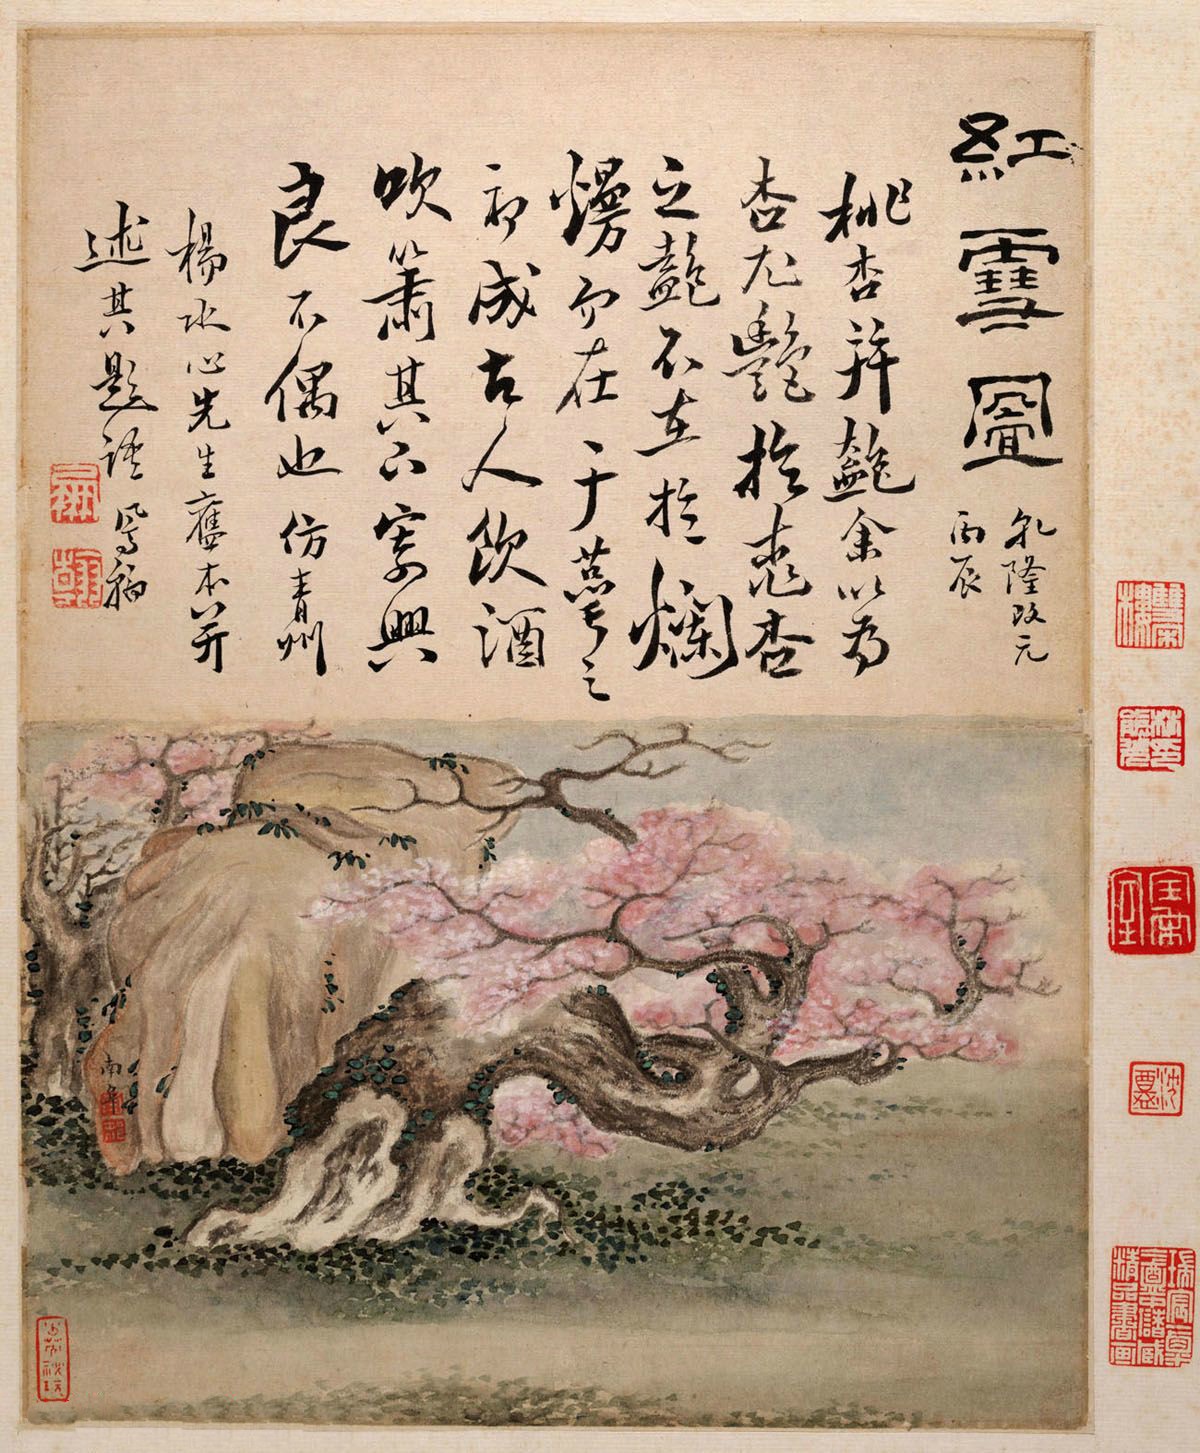 紅雪圖
乾隆改元
丙辰
桃杏並艷余以為
杏尤艷於桃杏
之艷不在於爛
熳而在于萼之
初成古人飲酒
吹簫其下寄興
良不偶也仿青州
楊水心先生舊本并
述其題語 鳳翰
南阜
雙宋樓